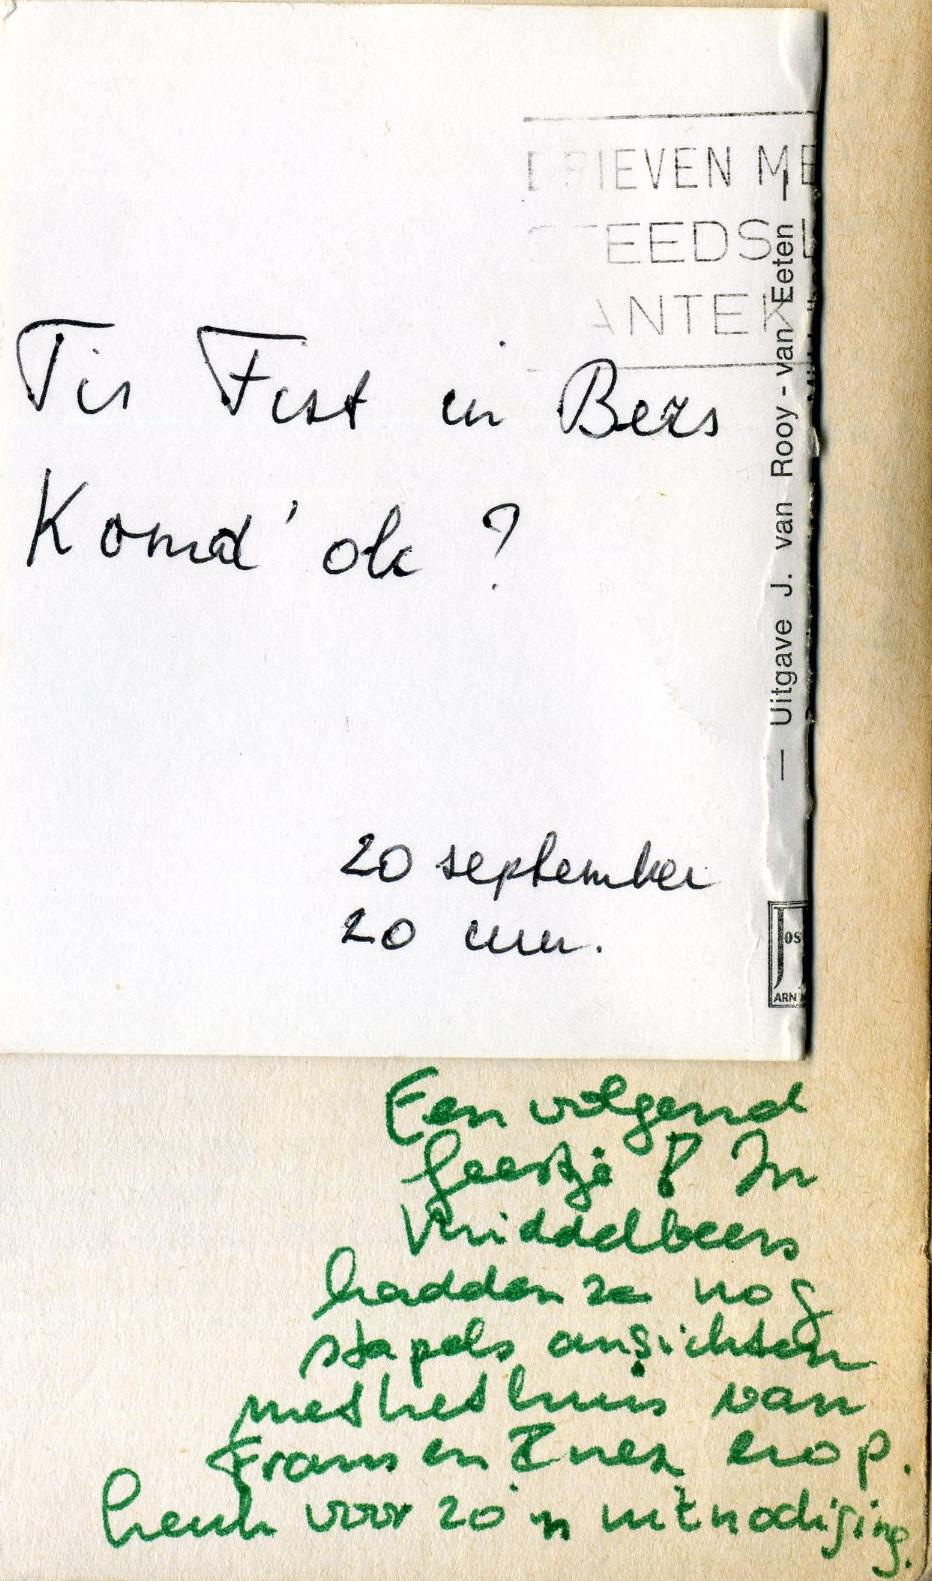 RIEVEN ME
TEEDS L
ANTEK
Tis Fist in Bers
Komd' ok ?
20 september
20 uur.
— Uitgave J. van Rooy - van Eeten —
JOS
ARN
Een volgend
feestje! In
Middelbeers
hadden ze nog
stapels ansichten
met het huis van
Frans en Inez erop.
Leuk voor zo'n uitnodiging.